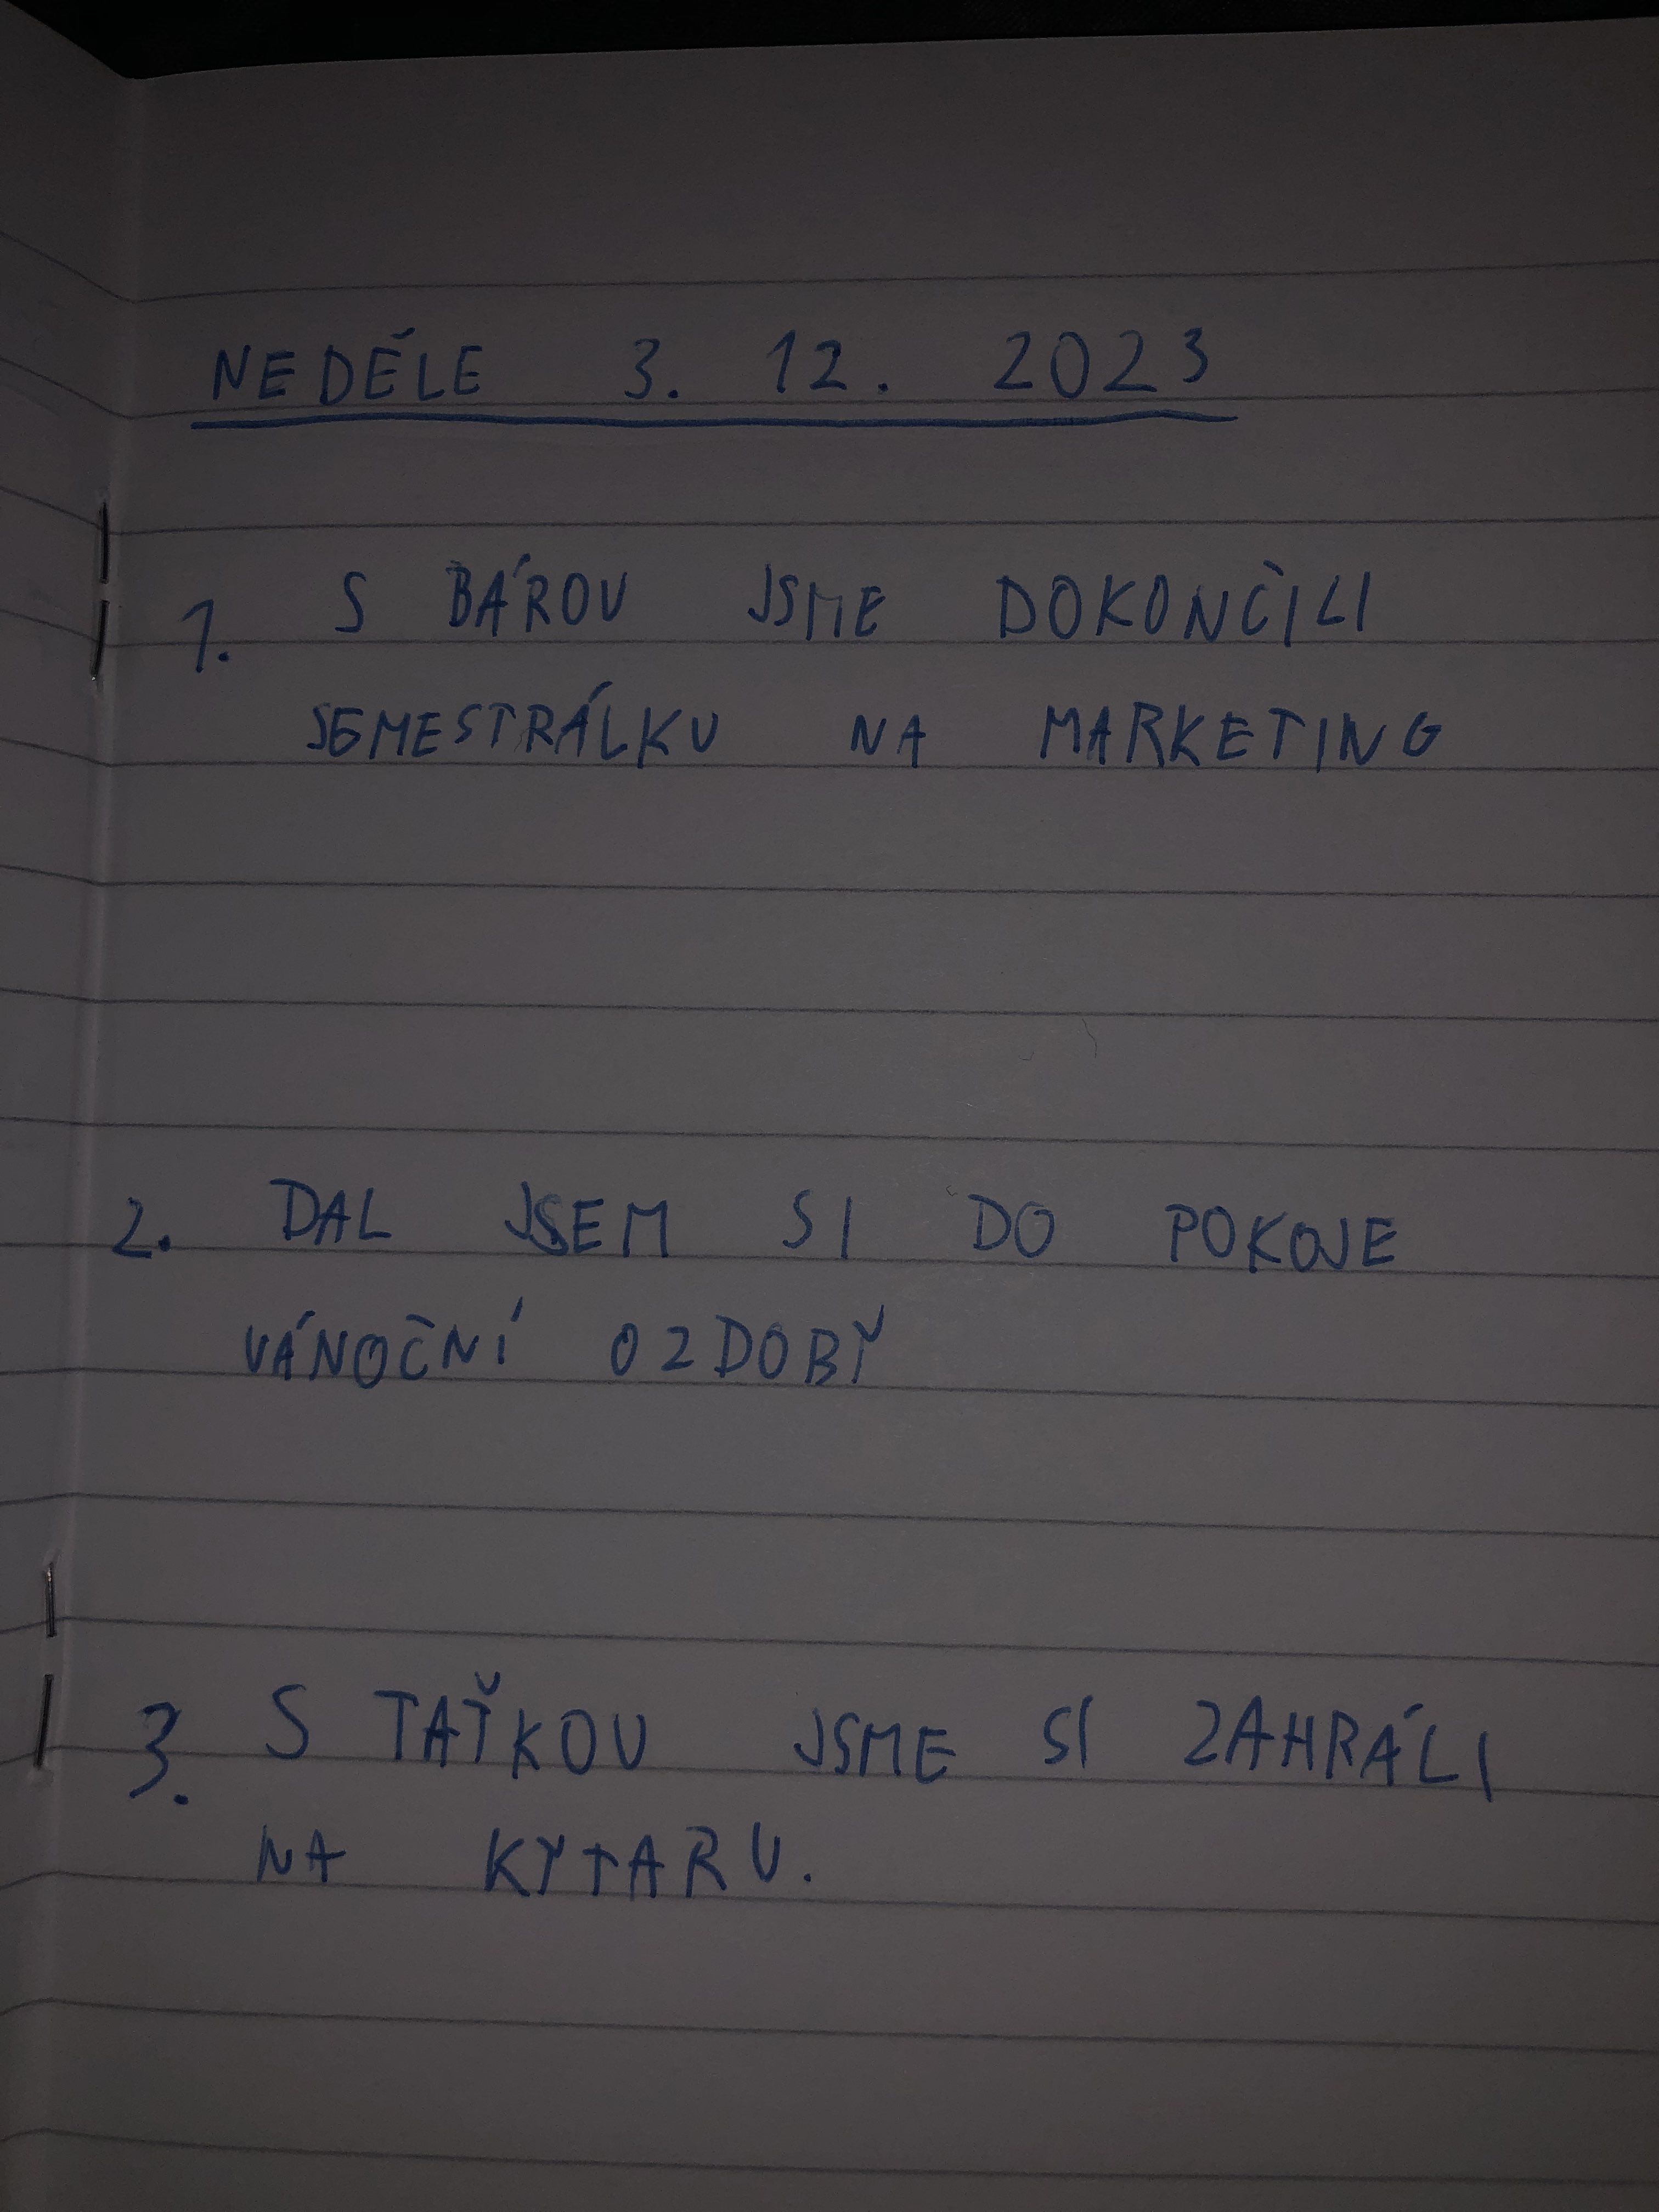 NEDĚLE 3. 12. 2023
1. S BÁROU JSME DOKONČILI
SEMESTRÁLKU NA MARKETING
2. DAL JSEM SI DO POKOJE
VÁNOČNÍ OZDOBY
3. S TAŤKOU JSME SI ZAHRÁLI
NA KYTARU.